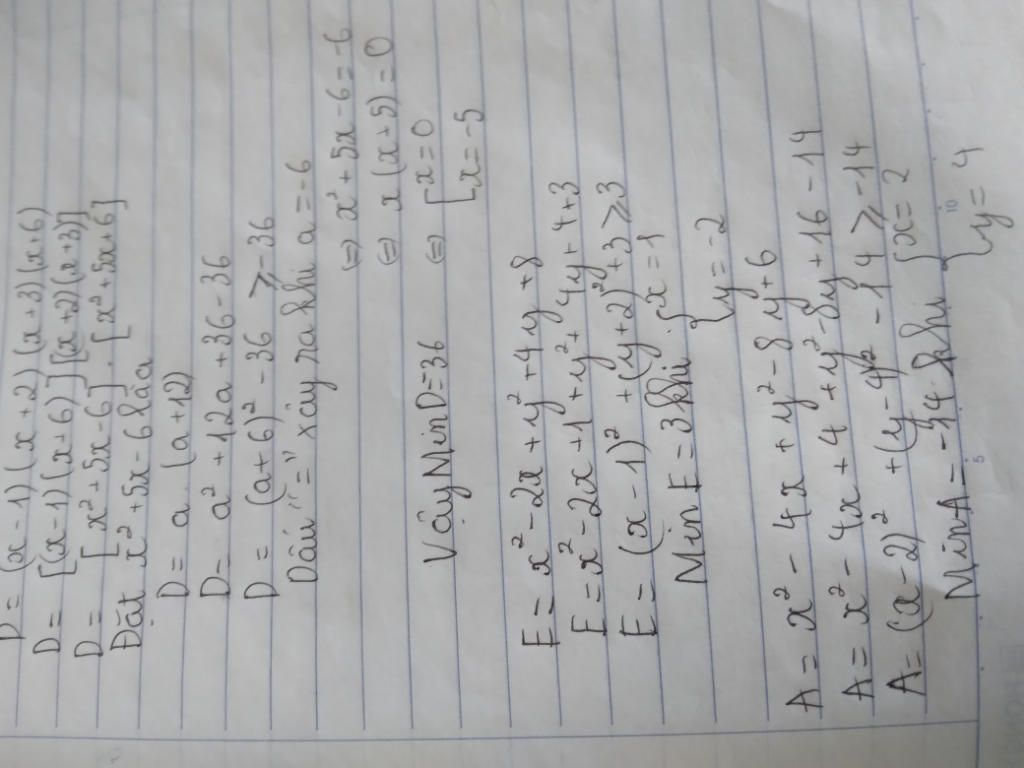 D = (x-1)(x+2)(x+3)(x+6)
D = [(x-1)(x+6)][(x+2)(x+3)]
D = [x²+5x-6].[x²+5x+6]
Đặt x²+5x-6 là a
D = a.(a+12)
D = a²+12a+36-36
D = (a+6)²-36 ⩾ -36
Dấu "=" xảy ra khi a = -6
⇔ x²+5x-6 = -6
⇔ x(x+5) = 0
⇔ [x = 0
[x = -5
Vậy Min D = 36
E = x²-2x+y²+4y+8
E = x²-2x+1+y²+4y+4+3
E = (x-1)²+(y+2)²+3 ⩾ 3
Min E = 3 khi {x = 1
{y = -2
A = x²-4x+y²-8y+6
A = x²-4x+4+y²-8y+16-14
A = (x-2)²+(y-4)²-14 ⩾ -14
Min A = -14 khi {x = 2
{y = 4
5
10